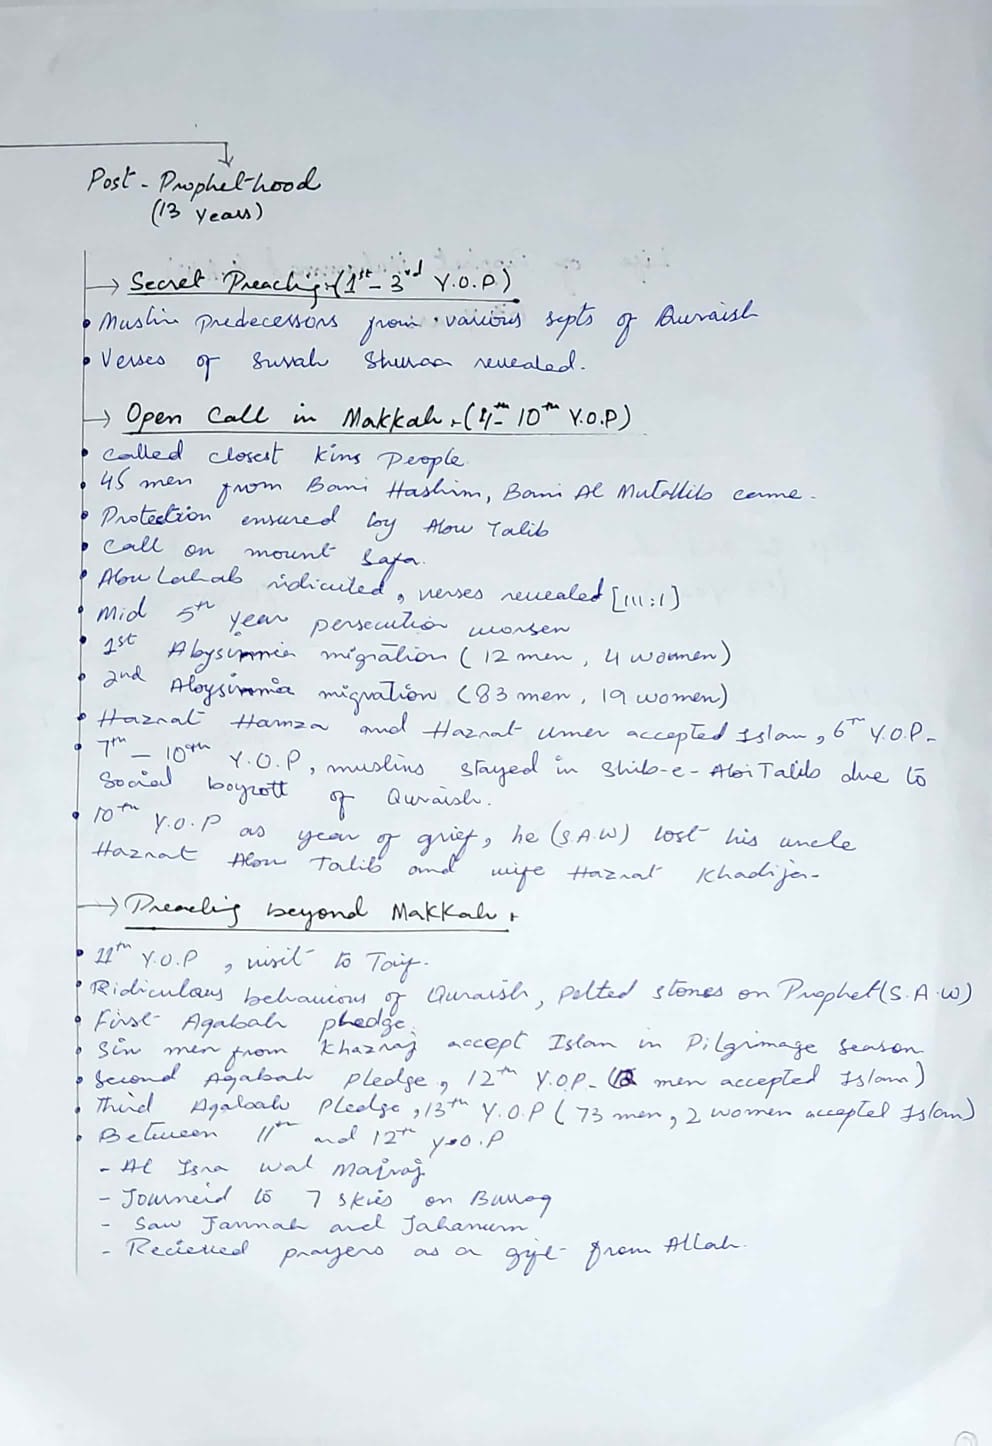 Post - Prophet-hood
(13 years)
→ Secret Preachig:-(1st - 3rd Y.O.P)
• Muslim predecessors from various septs of Quraish
• Verses of Surrah Shuraa revealed.
→ Open Call in Makkah:-(4th- 10th Y.O.P)
• Called closest kins people
• 45 men from Bani Hashim, Bani Al Mutallib came.
• Protection ensured by Abu Talib
• Call on mount Safa.
• Abu Lahab ridiculed, verses revealed [111:1]
• Mid 5th year persecution worsen
• 1st Abysinnia migration (12 men, 4 woomen)
• 2nd Aboysinnia migration (83 men, 19 women)
• Hazrat Hamza and Hazrat Umer accepted Islam, 6th Y.O.P.
• 7th - 10th Y.O.P, muslims stayed in Shib-e-Abi Talib due to
Social boycott of Quraish.
• 10th Y.O.P as year of grief, he (S.A.W) lost his uncle
Hazrat Abu Talib and wife Hazrat Khadija.
→ Preachig beyond Makkah:
• 11th Y.O.P, visit to Taif.
• Ridiculous behaviour of Quraish, pelted stones on Prophet (S.A.W)
• First Aqabah pledge.
• Six men from Khazraj accept Islam in Pilgrimage season
• Second Aqabah pledge, 12th Y.O.P- (12 men accepted Islam)
• Third Aqabah Pledge, 13th Y.O.P (73 men, 2 women accepted Islam)
• Between 11th and 12th Y.O.P
- Al Isra wal Majraj
- Journeid to 7 skies on Burraq
- Saw Jannah and Jahanum
- Recieved prayers as a gift from Allah.